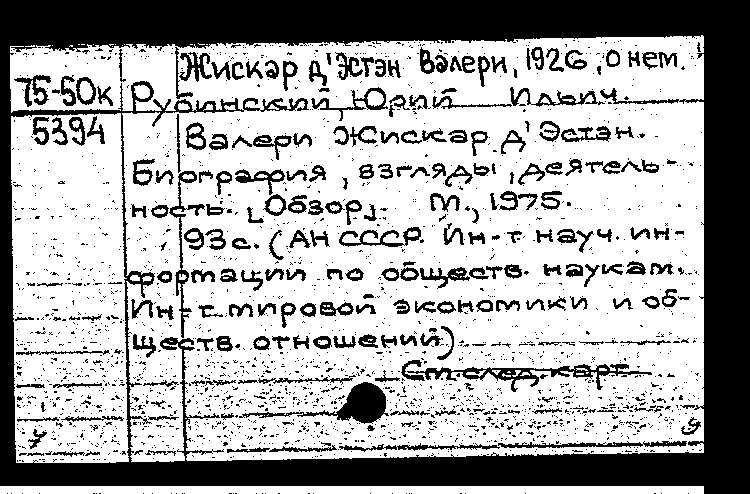 Жискар д'Эстэн Валери, 1926, о нем.
75-50к
Рубинский, Юрий Ильич.
5394
Валери Жискар д'Эстэн.
Биография, взгляды, деятель-
ность. [Обзор]. М., 1975.
93 с. (АН СССР. Ин-т науч. ин-
формации по обществ. наукам.
Ин-т мировой экономики и об-
ществ. отношений)
См. след. карт